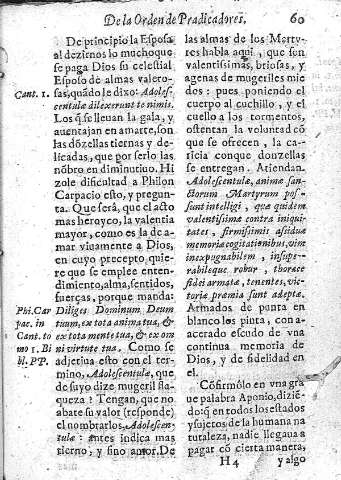 De la Orden de Predicadores, 60
De principio la Esposa
al dezirnos lo mucho que
se paga Dios su celestial
Esposo de almas valero-
Cant. 1. sas, quãdo le dixo: Adoles-
centulæ dilexerunt te nimis.
Los q̃ se lleuan la gala, y
auentajan en amarte, son
las dõzellas tiernas y de-
licadas, que por serlo las
nõbro en diminutiuo. Hi
zole dificultad a Philon
Carpacio esto, y pregun-
ta. Que serà, que el acto
mas heroyco, la valentia
mayor, como es la de a-
mar viuamente a Dios,
en cuyo precepto quie-
re que se emplee enten-
dimiento, alma, sentidos,
fuerças, porque manda:
Phi. Car Diliges Dominum Deum
pac. in tuum, ex tota anima tua, &
Cant. to ex tota mente tua, & ex om
mo 1. Bi ni virtute tua. Como se
bl. PP. adjetiua esto con el ter-
mino, Adolescentulæ, que
de suyo dize mugeril fla-
queza? Tengan, que no
abate su valor (responde)
el nombrarlos, Adolescen-
tulæ: antes indica mas
tierno, y fino amor. De
las almas de los Marty-
res habla aqui, que son
valentissimas, briosas, y
agenas de mugeriles mie
dos: pues poniendo el
cuerpo al cuchillo, y el
cuello a los tormentos,
ostentan la voluntad cõ
que se ofrecen, la ca-
ricia con que donzellas
se entregan. Atiendan.
Adolescentulæ, animæ san-
ctorum Martyrum pos-
sunt intelligi, quæ quidem
valentissimæ contra iniqui-
tates, firmissimis assiduæ
memoriæ cogitationibus, vim
inexpugnabilem, insupe-
rabileque robur, thorace
fidei armatæ, tenentes, vic-
toriæ præmia sunt adeptæ.
Armados de punta en
blanco los pinta, con a-
acerado escudo de vna
continua memoria de
Dios, y de fidelidad en
el.
Cõfirmólo en vna gra
ue palabra Aponio, dizié
do: q̃ en todos los estados
y sujetos de la humana na
turaleza, nadie llegaua a
pagar cõ cierta manera,
H 4 y algo